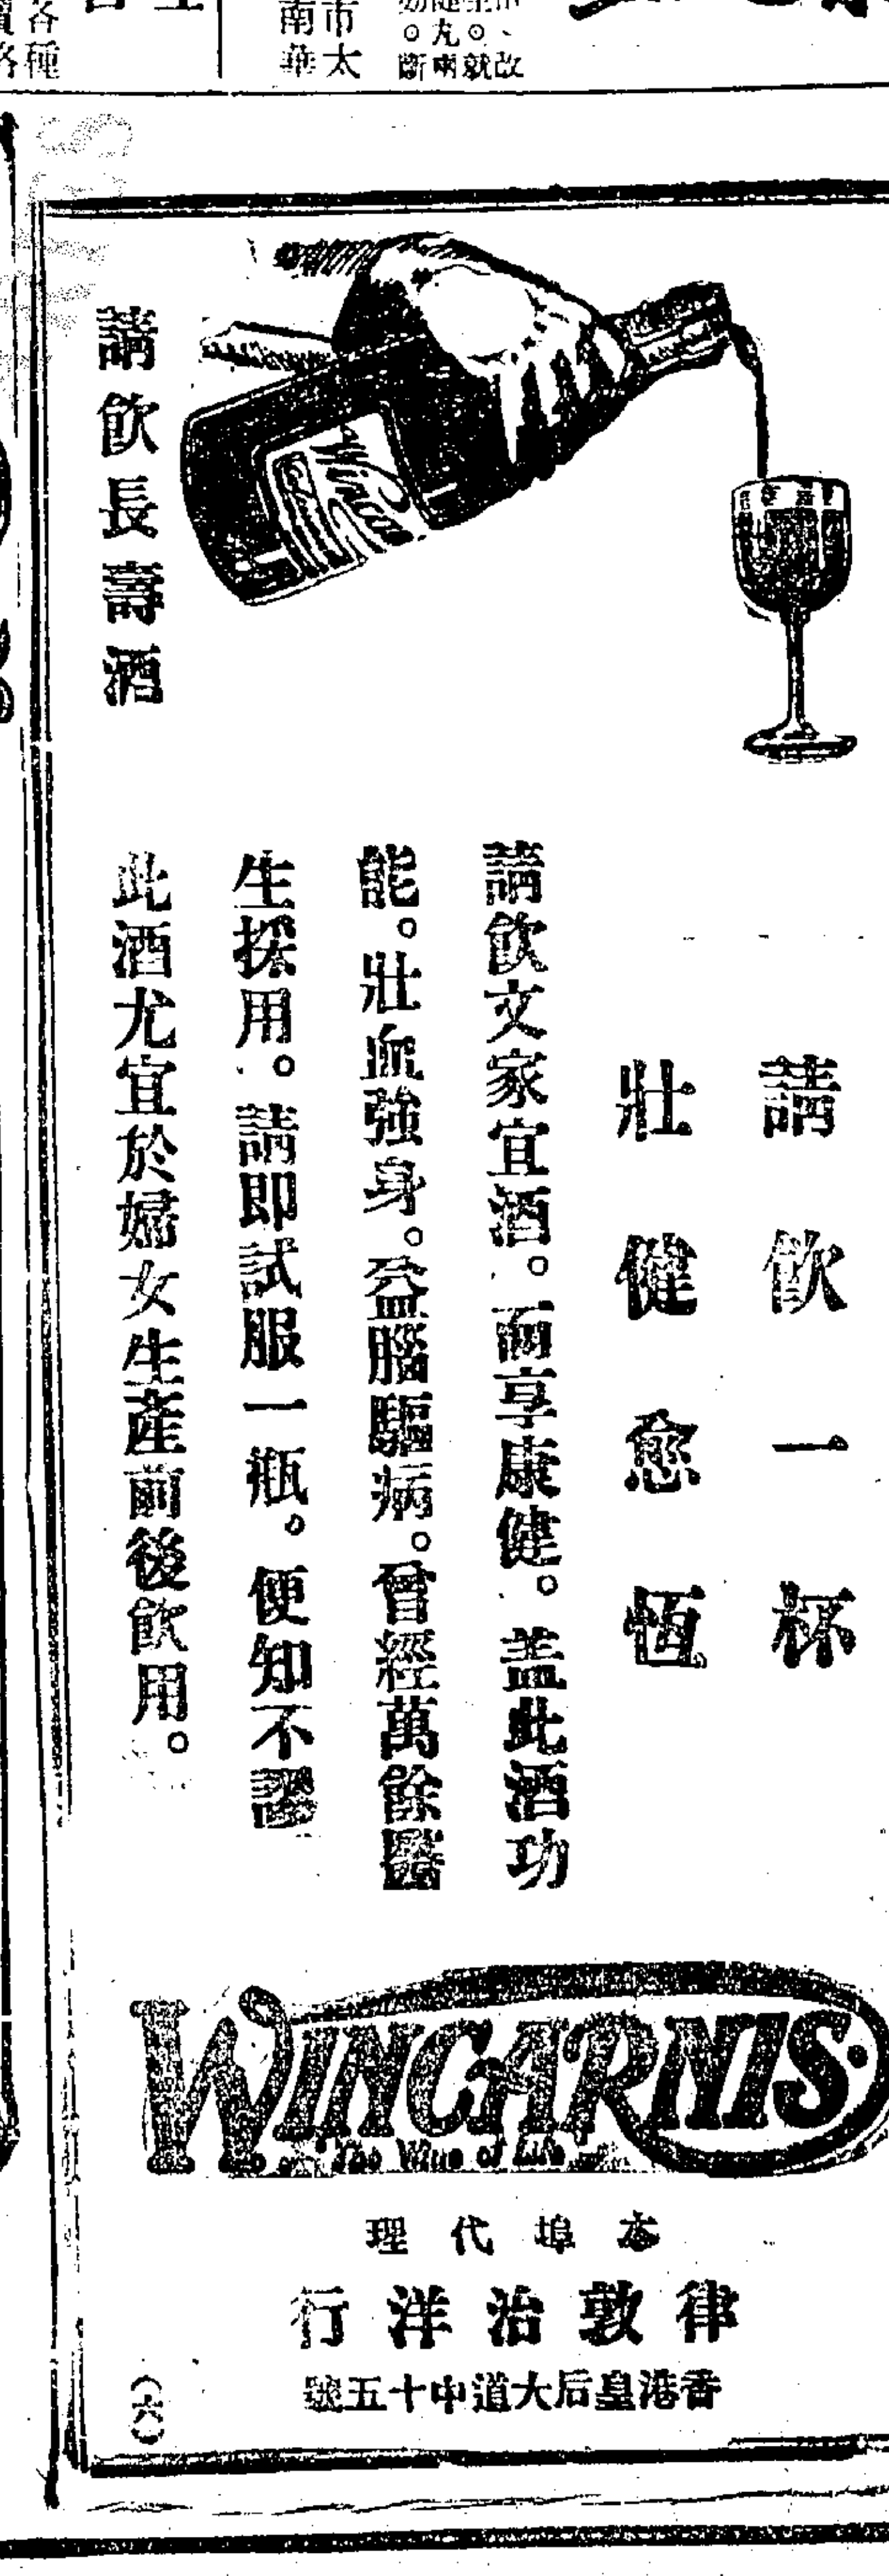 請飲一杯
壯健愈恆
請飲文家宜酒。而享康健。盖此酒功
能。壯血強身。益腦驅病。曾經萬餘醫
生採用。請即試服一瓶。便知不謬
此酒尤宜於婦女生產前後飲用。
請飲長壽酒
WINCARNIS.
The Wine of Life
本埠代理
律敦治洋行
香港皇后大道中十五號
(六)
市太
南華
各種